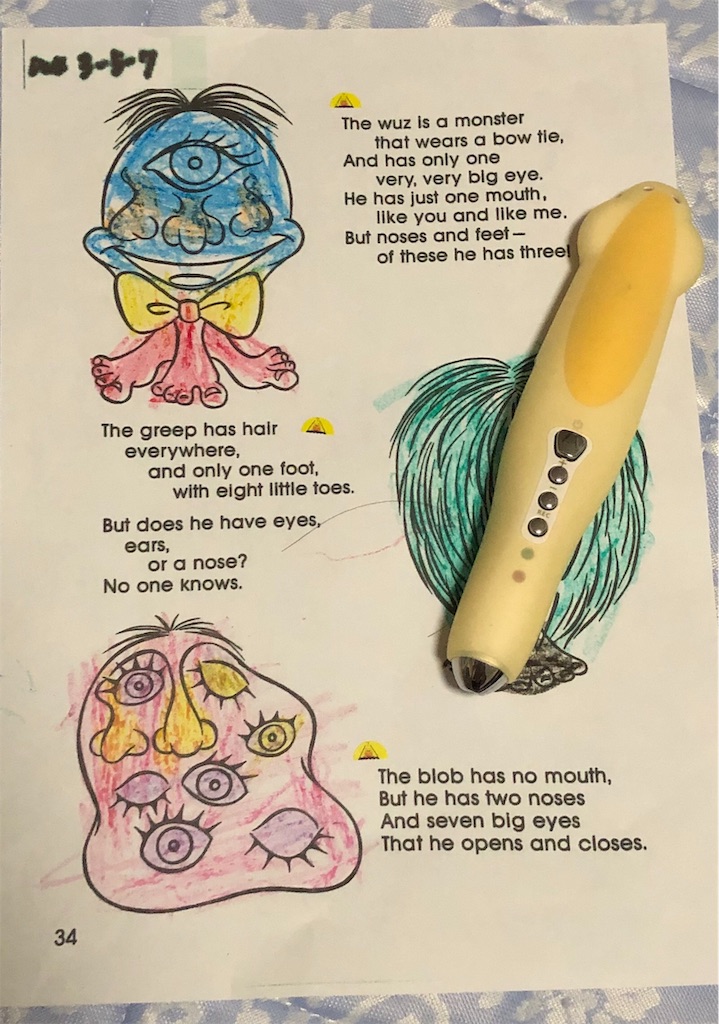 3-5-7
The wuz is a monster
that wears a bow tie,
And has only one
very, very big eye.
He has just one mouth,
like you and like me.
But noses and feet—
of these he has three!
The greep has hair
everywhere,
and only one foot,
with eight little toes.
But does he have eyes,
ears,
or a nose?
No one knows.
REC
The blob has no mouth,
But he has two noses
And seven big eyes
That he opens and closes.
34